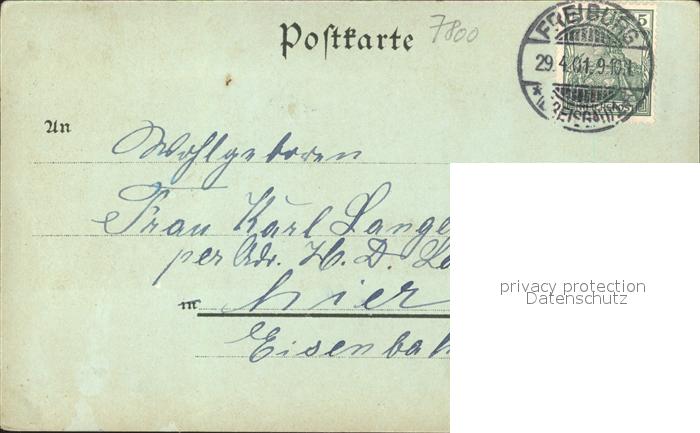 Postkarte
7800
FREIBURG
5
29.4.01.9-10V.
* (BREISGAU)
An
Wohlgeboren
Frau Karl Lange
per Adr. H. D. 
in hier
Eisenbah
privacy protection
Datenschutz